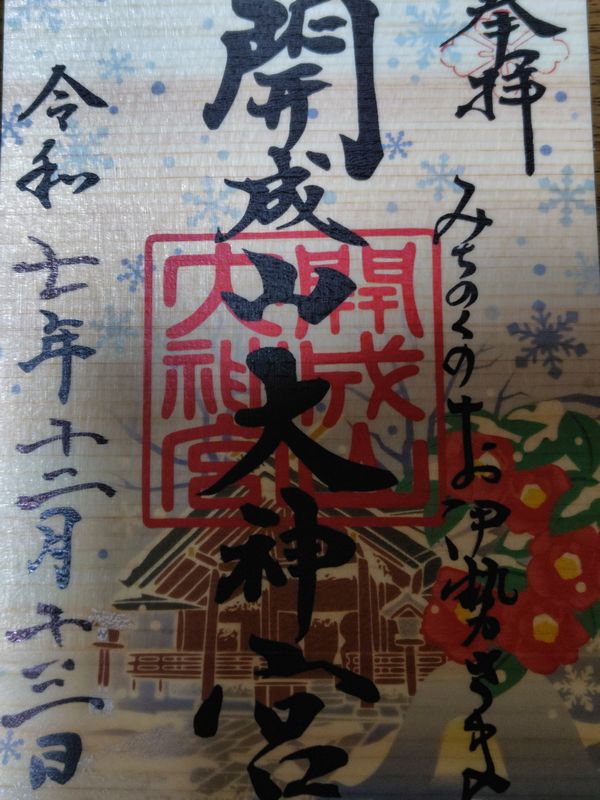 奉拝
みちのくのお伊勢さま
開成山大神宮
開成山
大神宮
令和七年十二月十三日